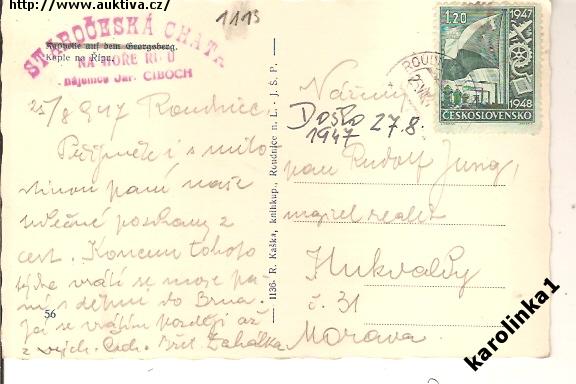 http://www.auktiva.cz/
1113
STAROČESKÁ CHATA
NA HOŘE ŘÍPU
nájemce Jar. CIBOCH
Kapelle auf dem Georgsberg.
Kaple na Řípu.
25/8 947 Roudnice.
Přijměte i s milo
stivou paní naše
vděčné pozdravy z
cest. Koncem tohoto
týdne vrátí se moje pa
ní s dětmi do Brna.
Já se vrátím později až
z vých. Čech. Břet. Zahálka
56
1136- R. Kaška, knihkup., Roudnice n. L. - J. Š. P.
1.20
1947
1948
ČESKOSLOVENSKO
Vážený
Došlo 27.8.
1947
pan Rudolf Jung,
majitel realit
Hukvaldy
č. 31
Morava.
karolinka1